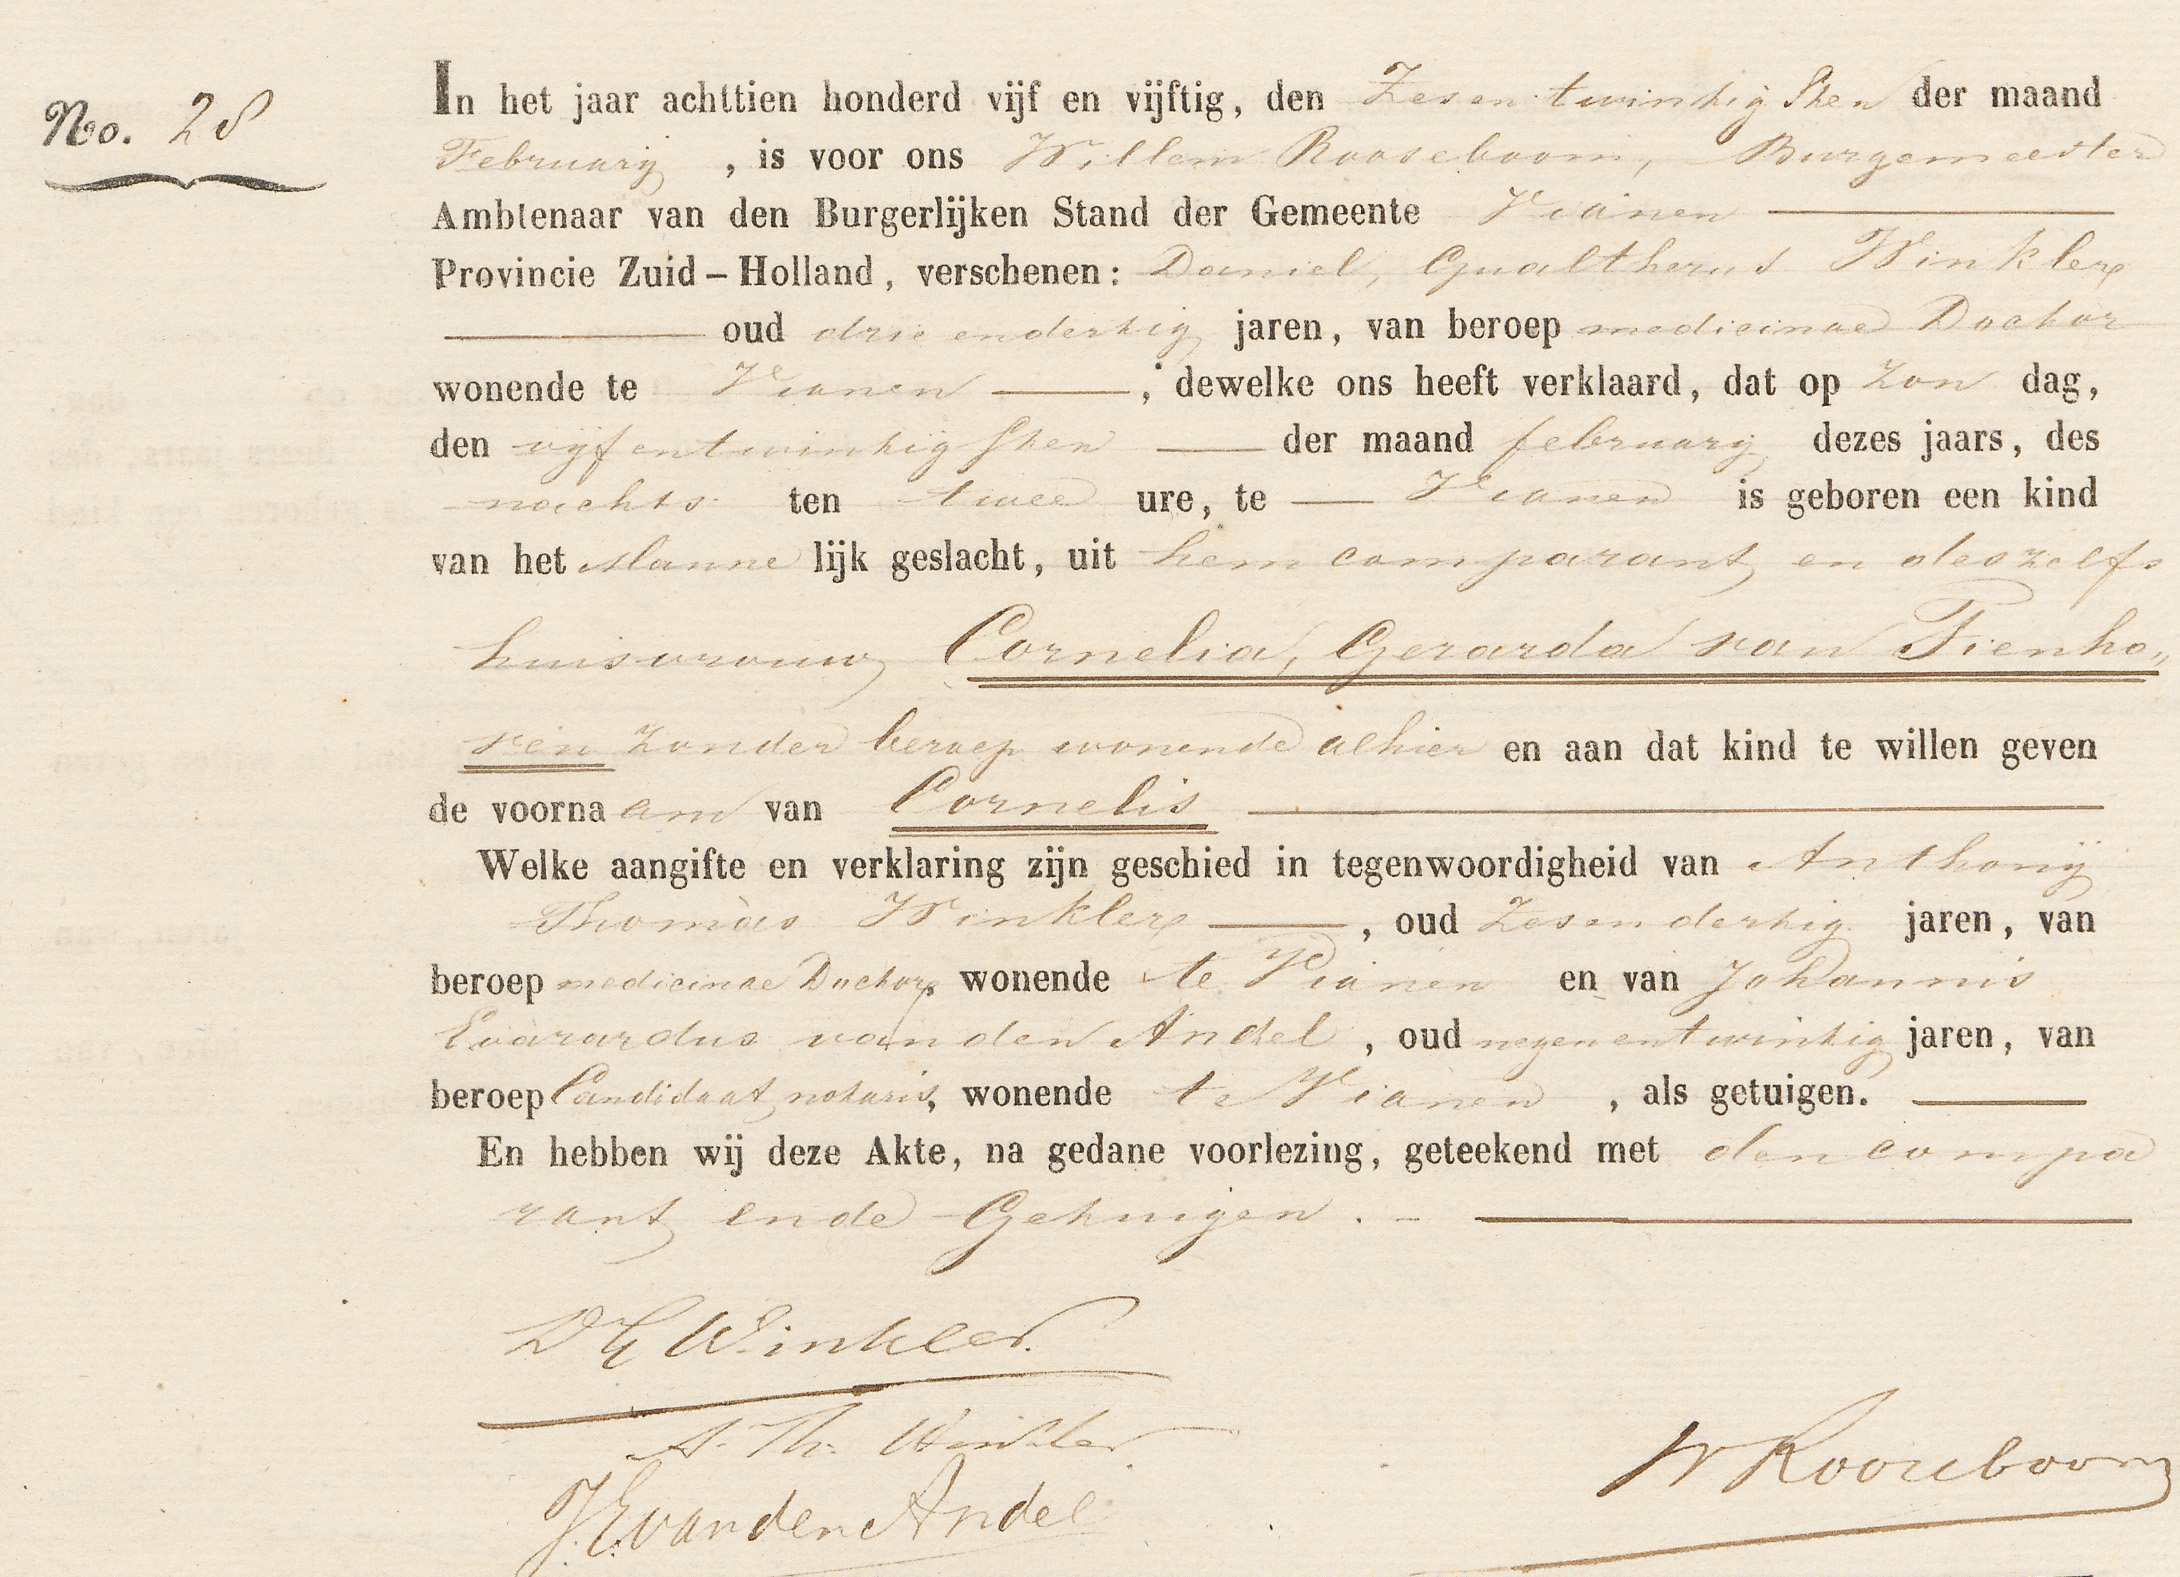 No. 28
In het jaar achttien honderd vijf en vijftig, den Zesentwintigsten der maand
Februarij, is voor ons Willem Rooseboom, Burgemeester
Ambtenaar van den Burgerlijken Stand der Gemeente Vianen
Provincie Zuid-Holland, verschenen: Daniel, Gualtherus Winkler,
oud drie endertig jaren, van beroep medicinae Doctor
wonende te Vianen, dewelke ons heeft verklaard, dat op Zon dag,
den vijfentwintigsten der maand februarij dezes jaars, des
nachts ten twee ure, te Vianen is geboren een kind
van het Manne lijk geslacht, uit hem comparant, en deszelfs
huisvrouw, Cornelia, Gerarda van Tienho„
ven zonder beroep wonende alhier en aan dat kind te willen geven
de voorna am van Cornelis
Welke aangifte en verklaring zijn geschied in tegenwoordigheid van Anthonij
Thomas Winkler, oud Zesendertig jaren, van
beroep medicinae Doctor, wonende te Vianen en van Johannis
Evarardus van den Andel, oud negenentwintig jaren, van
beroep Candidaat notaris, wonende te Vianen, als getuigen.
En hebben wij deze Akte, na gedane voorlezing, geteekend met den compa
rant en de Getuigen. -
D G Winkler.
A. Th. Winkler
W Rooseboom
J. E. van den Andel